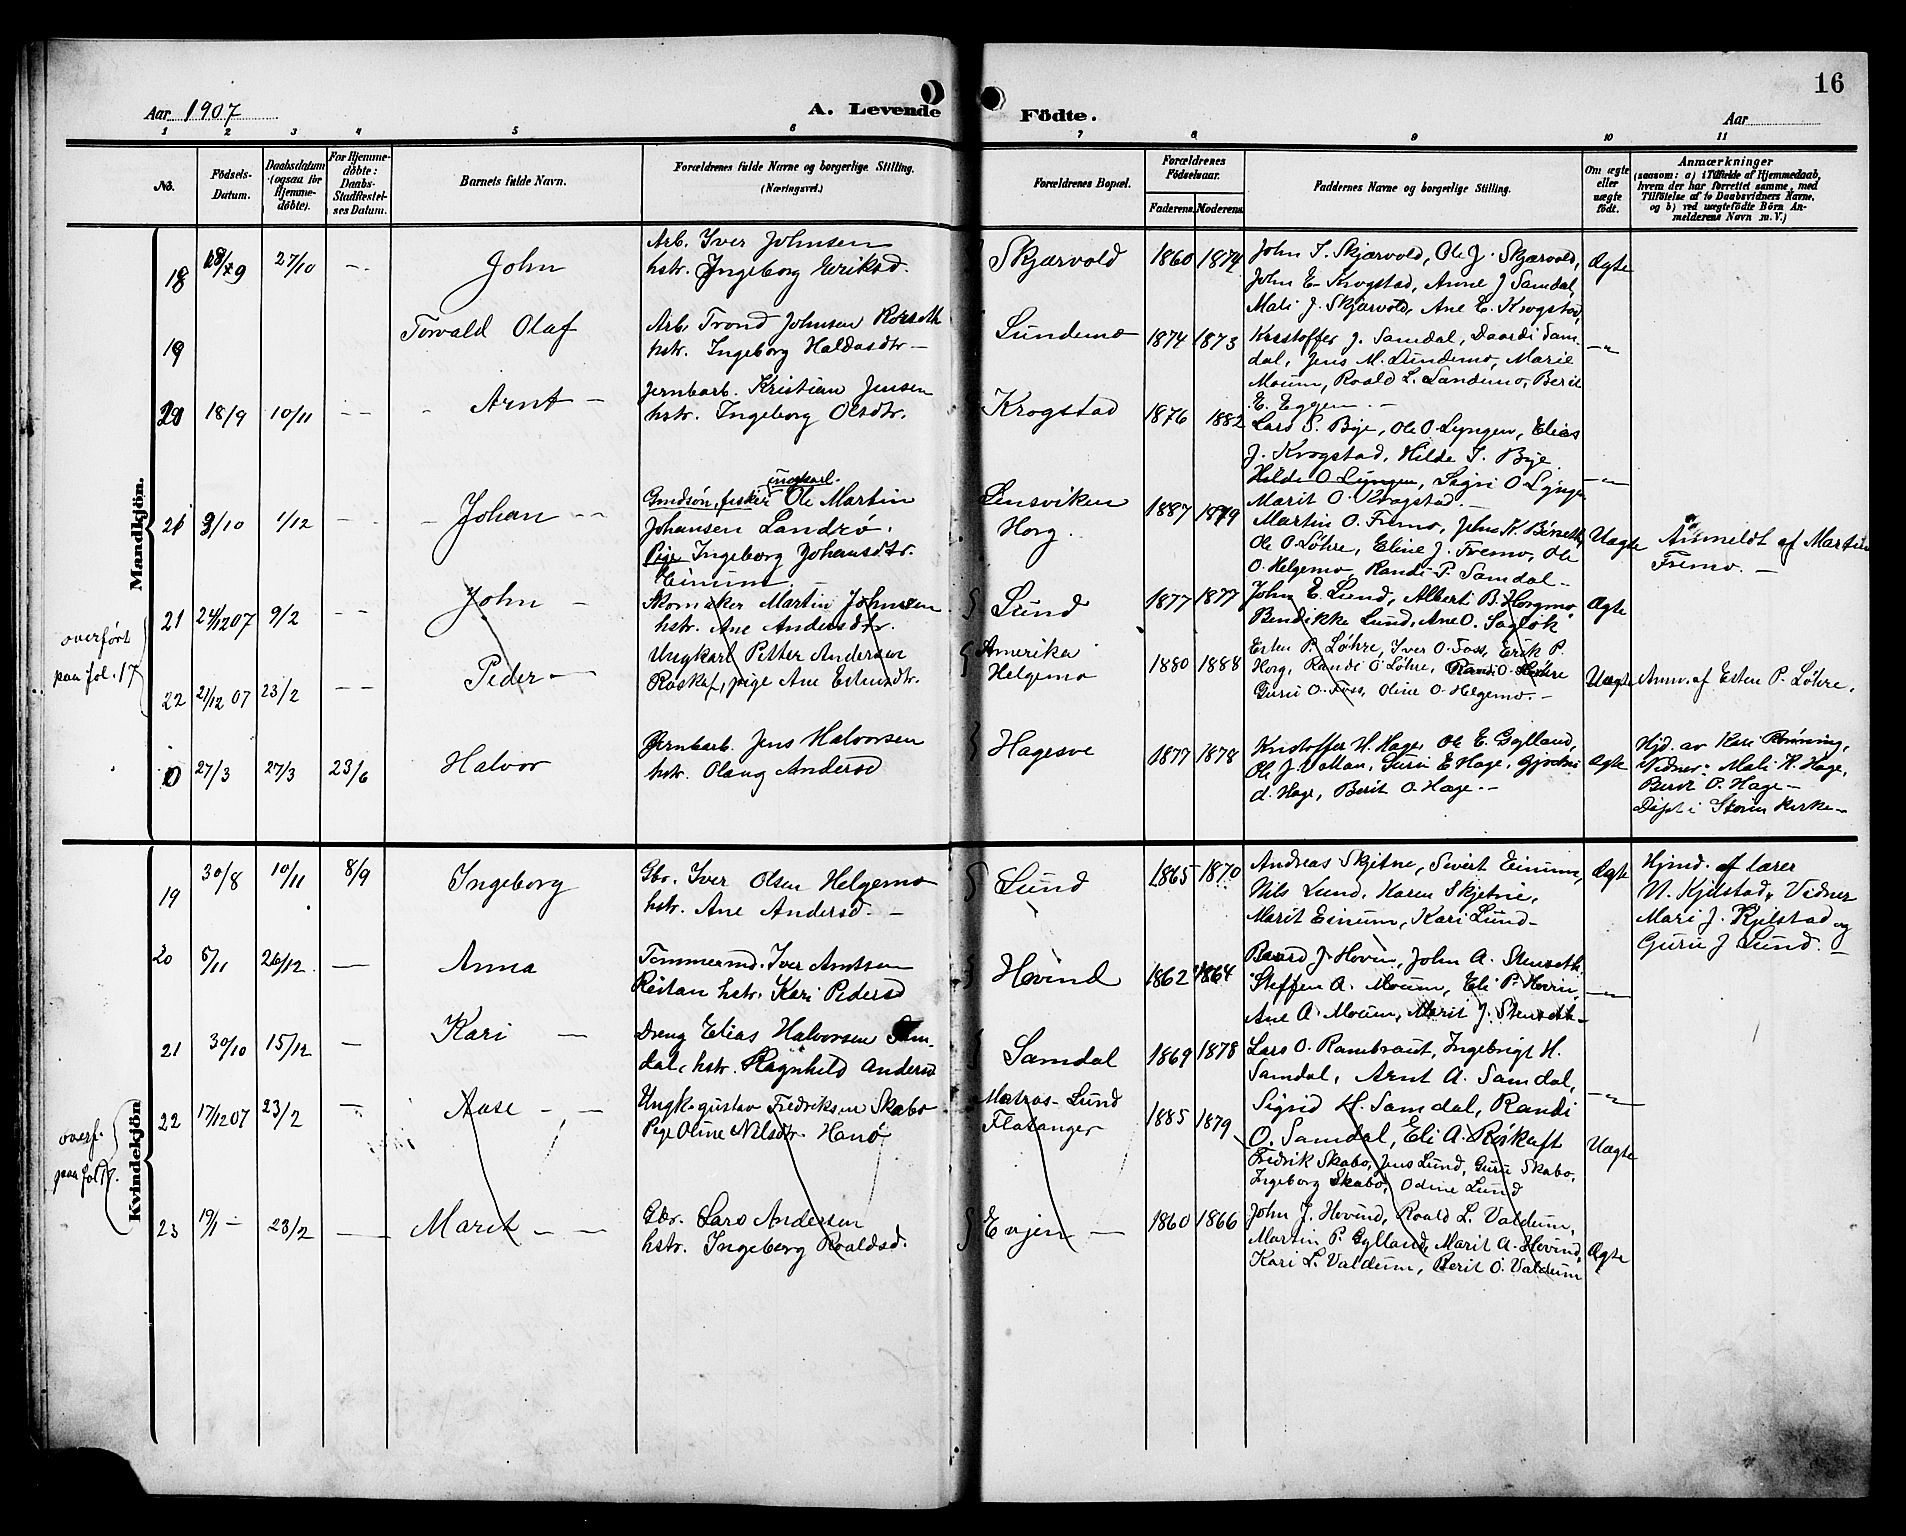 16
Aar 1907
A. Levende Födte.
Aar
1 2 3 4 5 6 7 8 9 10 11
No.
Födsels-
Datum.
Daabsdatum
(ogsaa for
Hjemme-
döbte).
For Hjemme-
döbte:
Daabs-
Stadfæstel-
ses Datum.
Barnets fulde Navn.
Forældrenes fulde Navne og borgerlige Stilling.
(Næringsvei.)
Forældrenes Bopæl.
Forældrenes
Födselsaar.
Faderens. Moderens.
Faddernes Navne og borgerlige Stilling.
Om ægte
eller
uægte
födt.
Anmærkninger
(saasom: a) i Tilfælde af Hjemmedaab,
hvem der har forrettet samme, med
Tilföielse af to Daabsvidners Navne,
og b) ved uægtefödte Börn An-
melderens Navn m. V.)
Mandkjön.
18 27/10 — John
Arb. Iver Johnsen
hstr. Ingeborg Eriksd.
Skjærvold 1860 1874
John I. Skjærvold, Ole J. Skjærvold,
John E. Krogstad, Anne J Samdal,
Mali J. Skjærvold, Ane E. Krogstad,
Ægte
19 Torvald Olaf
Arb. Trond Johnsen
hstr. Ingeborg Haldosdtr —
Lundemo 1874 1873
Kristoffer J. Samdal, Daardi Sam-
dal, Jens M. Lundemo, Marie
Moum, Roald L. Lundemo, Berit
E. Eggen. —
—"—
20 18/9 10/11 — — Arnt —
Jernbarb. Kristian Jensen
hstr. Ingeborg Olsdtr.
Krogstad 1876 1882
Lars S. Bye, Ole O Lyngen, Elias
J. Krogstad, Hilde I. Bye
Hilde O Lyngen, Sigri O Lyngen
Marit O. Krogstad. —
—"—
21 3/10 1/12 — Johan — —
ungkarl
Gmdsøn, fisker Ole Martin
Johansen Landrø.
Pige Ingeborg Johansdtr.
Einum.
Lensviken
Horg.
1887 1879
Martin O. Fremo, Jens K. Bønett,
Ole O. Løhre, Eline J. Fremo, Ole
O. Helgemo, Randi P. Samdal —
Uægte
Anmeldt af Martin
Fremo. —
overført
paa fol. 17
21 24/12 07 9/2 — — John —
Skomaker Martin Johnsen
hstr. Ane Andersdtr.
Lund 1877 1877
John E. Lund, Albert B. Horgmo
Bendikke Lund, Ane O. Sagløk
Ægte
22 21/12 07 23/2 — — Peder —
Ungkarl Petter Andersen
Røskaf, pige Ane Estensdtr.
Amerika
Helgemo
1880 1888
Esten P. Løhre, Iver O. Foss, Erik P.
Horg, Randi O Løhre,
Guru O. Foss, Oline O. Helgemo. —
Uægte Anm. af Esten P. Løhre.
0 27/3 27/3 23/6 Halvor
Jernbarb. Jens Halvorsen
hstr. Olaug Andersd
Hagesve 1877 1878
Kristoffer H. Hage, Ole E. Gylland,
Ole J. Volian, Guru E Hage,
d. Hage, Berit O. Hage. —
Ægte
Hjd. av Kari
Vidner: Mali H. Hage,
Berit P. Hage —
Døpt i Støren Kirke —
Kvindekjön
19 30/8 10/11 8/9 Ingeborg
Gbr. Iver Olsen Helgemo
hstr. Ane Andersd. —
Lund 1865 1870
Andreas Skjetne, Sivert Einum,
Nils Lund, Karen Skjetne,
Marit Einum, Kari Lund —
Ægte
Hjmd. af lærer
N. Kjelstad, Vidner
Mari J. Kjelstad og
Guru J Lund. —
20 5/11 26/12 — Anna
Tømmermd. Iver Arntsen
Reitan hstr. Kari Pedersd
Hovind 1862 1864
Baard J. Hovin, John A. Stenseth.
Steffen A. Moum, Eli P. Hovin,
Ane A. Moum, Marit J. Stenseth —
—"—
21 30/10 15/12 — Kari —
Dreng Elias Halvorsen Sam-
dal, hstr. Ragnhild Andersd
Samdal 1869 1878
Lars O. Rambraut, Ingebrigt H.
Samdal, Arnt A. Samdal,
Sigrid H. Samdal, Randi
O. Samdal, Eli A. Røskaft
—"—
overf.
paa fol 17.
22 17/12 07 23/2 — Aase — —
Ungk. Gustav Fredriksen Skabo
Pige Oline Nilsdtr. Hanø
Matros — Lund
Flatanger
1885 1879
Fredrik Skabo, Jens Lund, Guru Skabo,
Ingeborg Skabo, Odine Lund
Uægte
23 19/1 — 23/2 — Marit — —
Gbr. Lars Andersen
hstr. Ingeborg Roaldsd.
Evjen — 1860 1866
John J. Hovind, Roald L. Valdum,
Martin P. Gylland, Marit A. Hovind,
Kari L. Valdum, Berit O. Valdum
Ægte